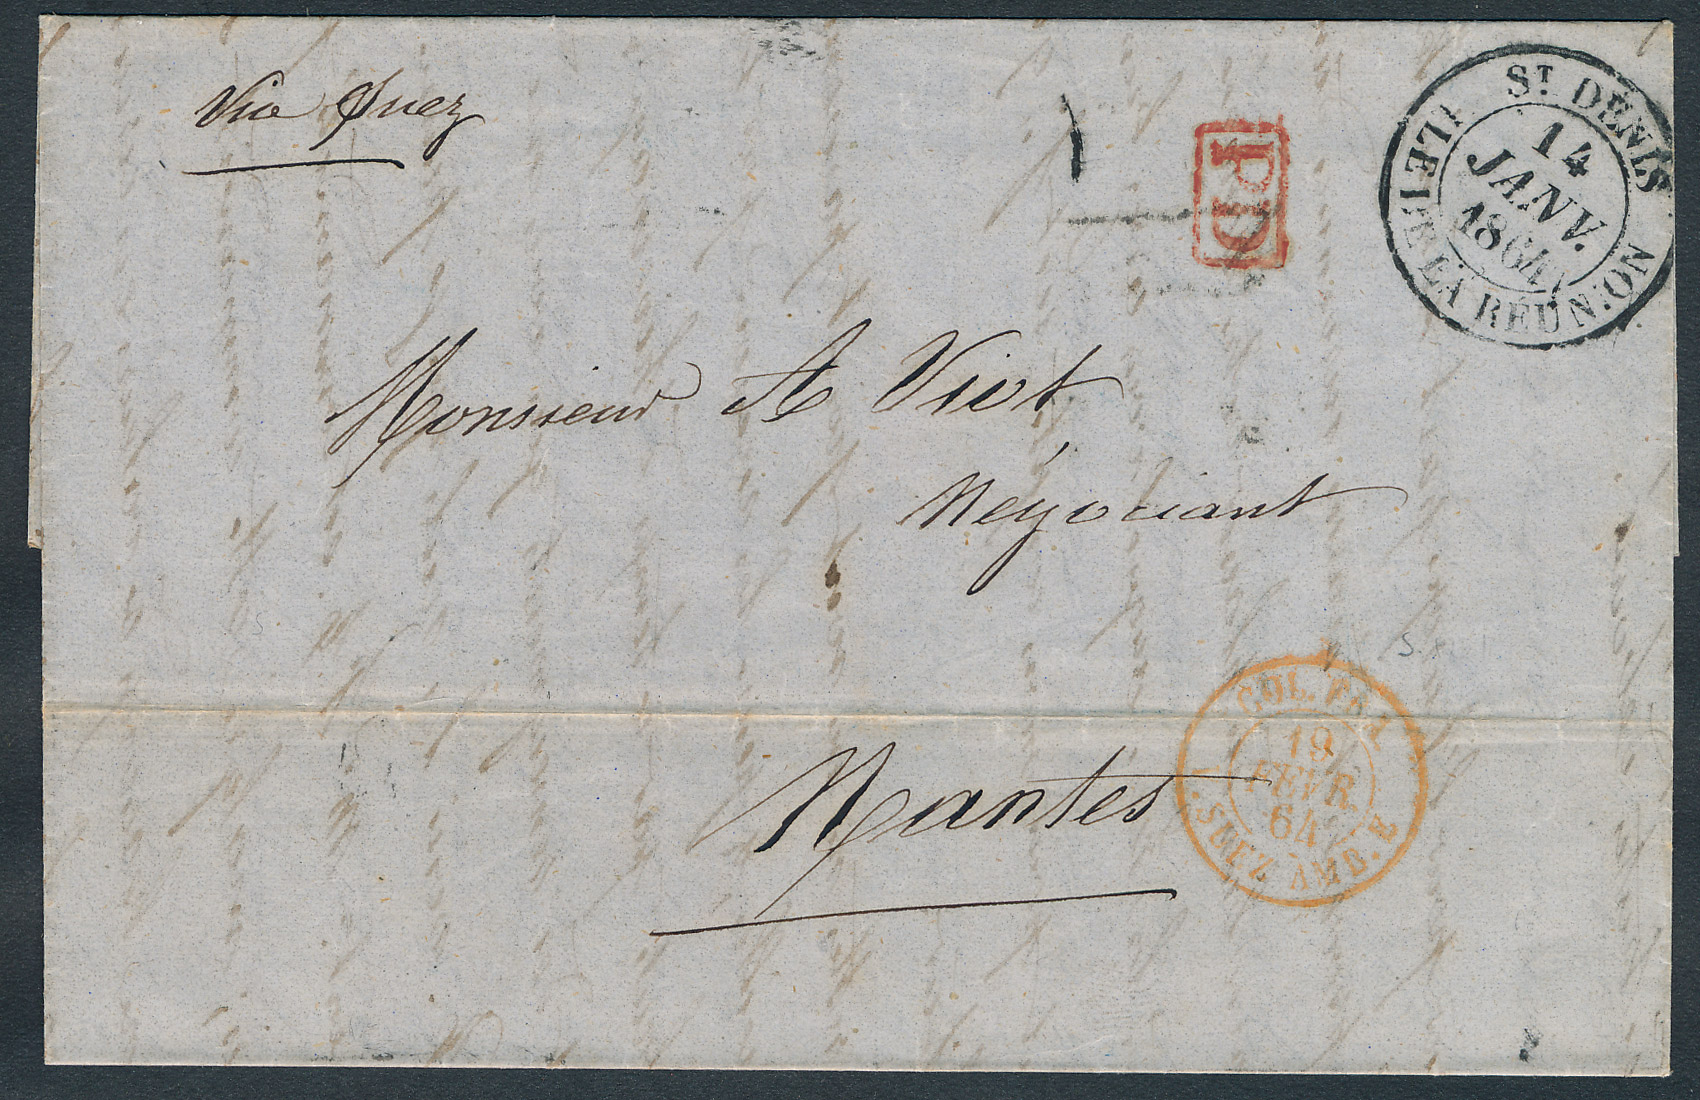 Via Suez
PD
ST DENIS
ILE DE LA RÉUNION
14
JANV.
1864
Monsieur A Viot
Négociant
Nantes
COL. FRA
19
FEVR.
64
SUEZ AMB.